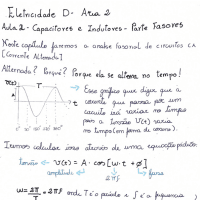 Eletricidade D - Area 2
Aula 2 - Capacitores e Indutores - Parte Fasores
Neste capítulo faremos a análise fasorial de circuitos CA
[Corrente Alternada]
Alternada? Porquê? Porque ela se alterna no tempo!
T
0° 90° 180° 270° 360°
Esse gráfico quer dizer que a
corrente que passa por um
circuito irá variar no tempo
para a Tensão V(t) varia
no tempo (em forma de cosseno).
Iremos calcular isso através de uma equação padrão
tensão V(t) = A · cos [w · t + ø]
amplitude 2πf fase
w = 2π/T = 2πf onde T é o período e f é a frequência